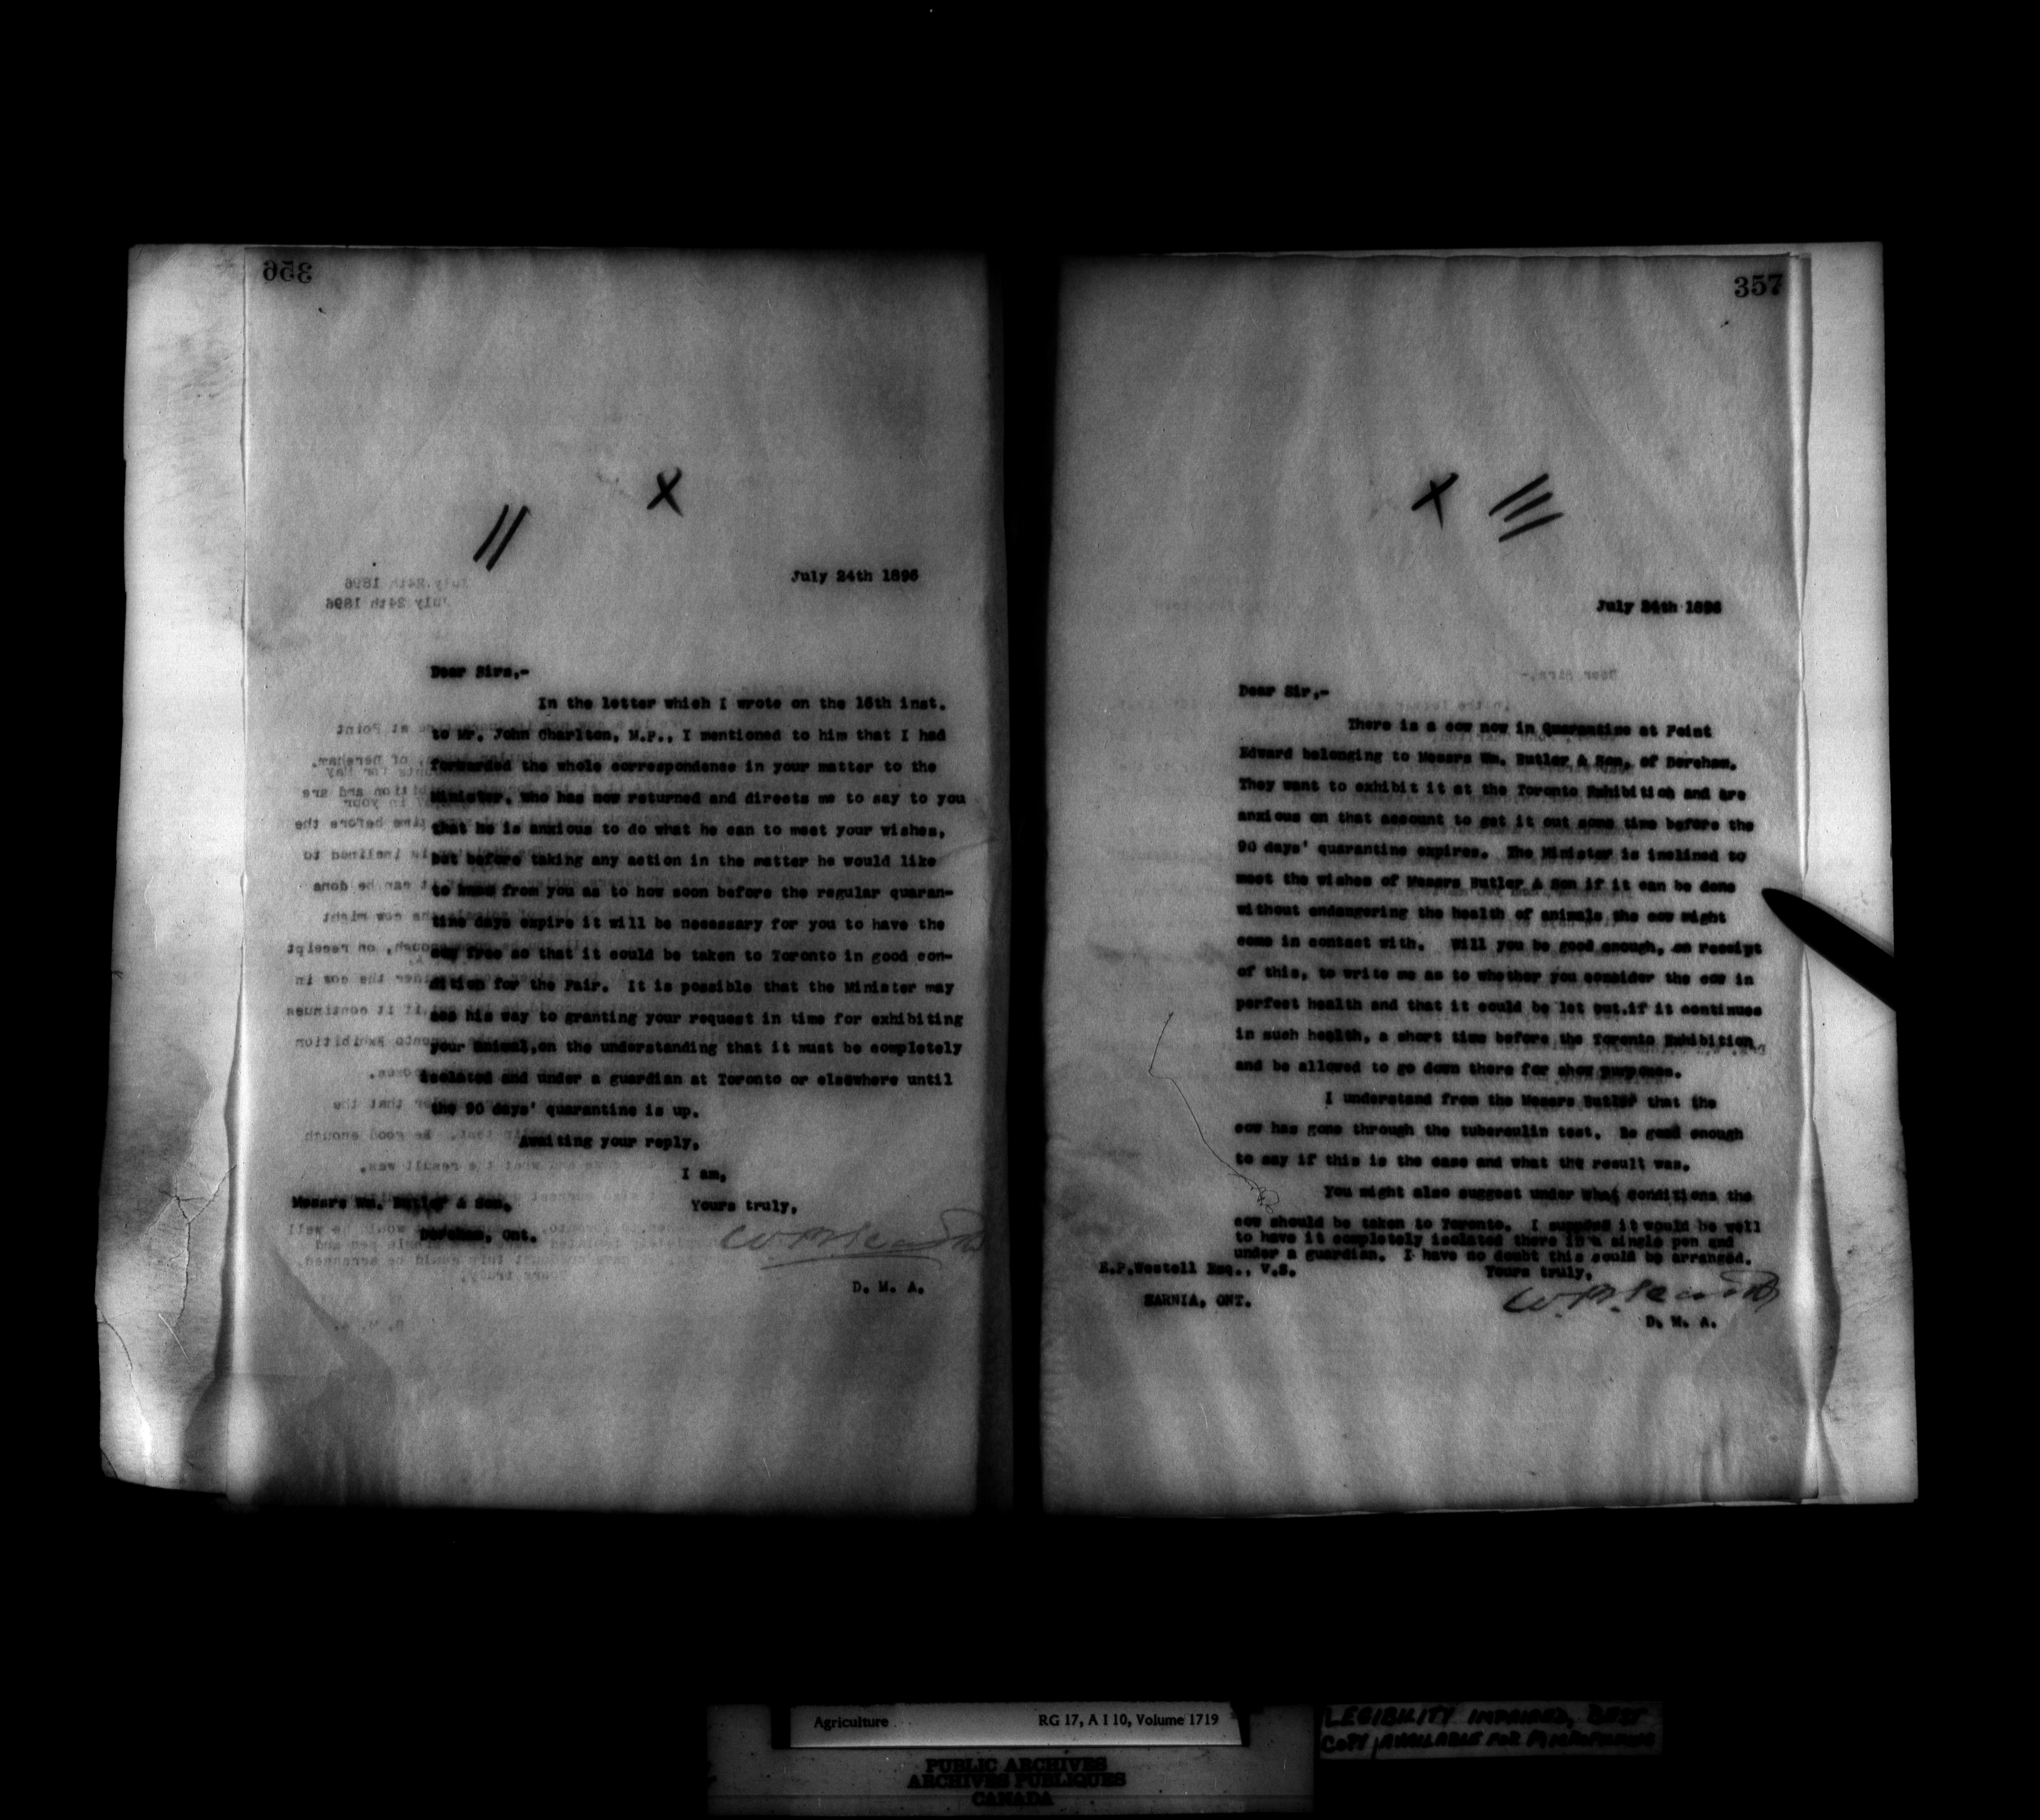 356
July 24th 1896
Dear Sirs,-
In the letter which I wrote on the 16th inst.
to Mr. John Charlton, M.P., I mentioned to him that I had
forwarded the whole correspondence in your matter to the
Minister, who has now returned and directs me to say to you
that he is anxious to do what he can to meet your wishes,
but before taking any action in the matter he would like
to know from you as to how soon before the regular quaran-
tine days expire it will be necessary for you to have the
cow free so that it could be taken to Toronto in good con-
dition for the Fair. It is possible that the Minister may
see his way to granting your request in time for exhibiting
your animal,on the understanding that it must be completely
isolated and under a guardian at Toronto or elsewhere until
the 90 days' quarantine is up.
Awaiting your reply,
I am,
Yours truly,
Messrs Wm. Butler & Son,
Dereham, Ont.
D. M. A.
357
July 24th 1896
Dear Sir,-
There is a cow now in Quarantine at Point
Edward belonging to Messrs Wm. Butler & Son, of Dereham.
They want to exhibit it at the Toronto Exhibition and are
anxious on that account to get it out some time before the
90 days' quarantine expires. The Minister is inclined to
meet the wishes of Messrs Butler & Son if it can be done
without endangering the health of animals the cow might
come in contact with. Will you be good enough, on receipt
of this, to write me as to whether you consider the cow in
perfect health and that it could be let out.if it continues
in such health, a short time before the Toronto Exhibition
and be allowed to go down there for show purposes.
I understand from the Messrs Butler that the
cow has gone through the tuberculin test. Be good enough
to say if this is the case and what the result was.
You might also suggest under what conditions the
cow should be taken to Toronto. I suppose it would be well
to have it completely isolated there in a single pen and
under a guardian. I have no doubt this could be arranged.
Yours truly,
E.P.Westell Esq., V.S.
SARNIA, ONT.
D. M. A.
Agriculture RG 17, A I 10, Volume 1719
PUBLIC ARCHIVES
ARCHIVES PUBLIQUES
CANADA
LEGIBILITY IMPAIRED, BEST
COPY AVAILABLE FOR MICROFILMING